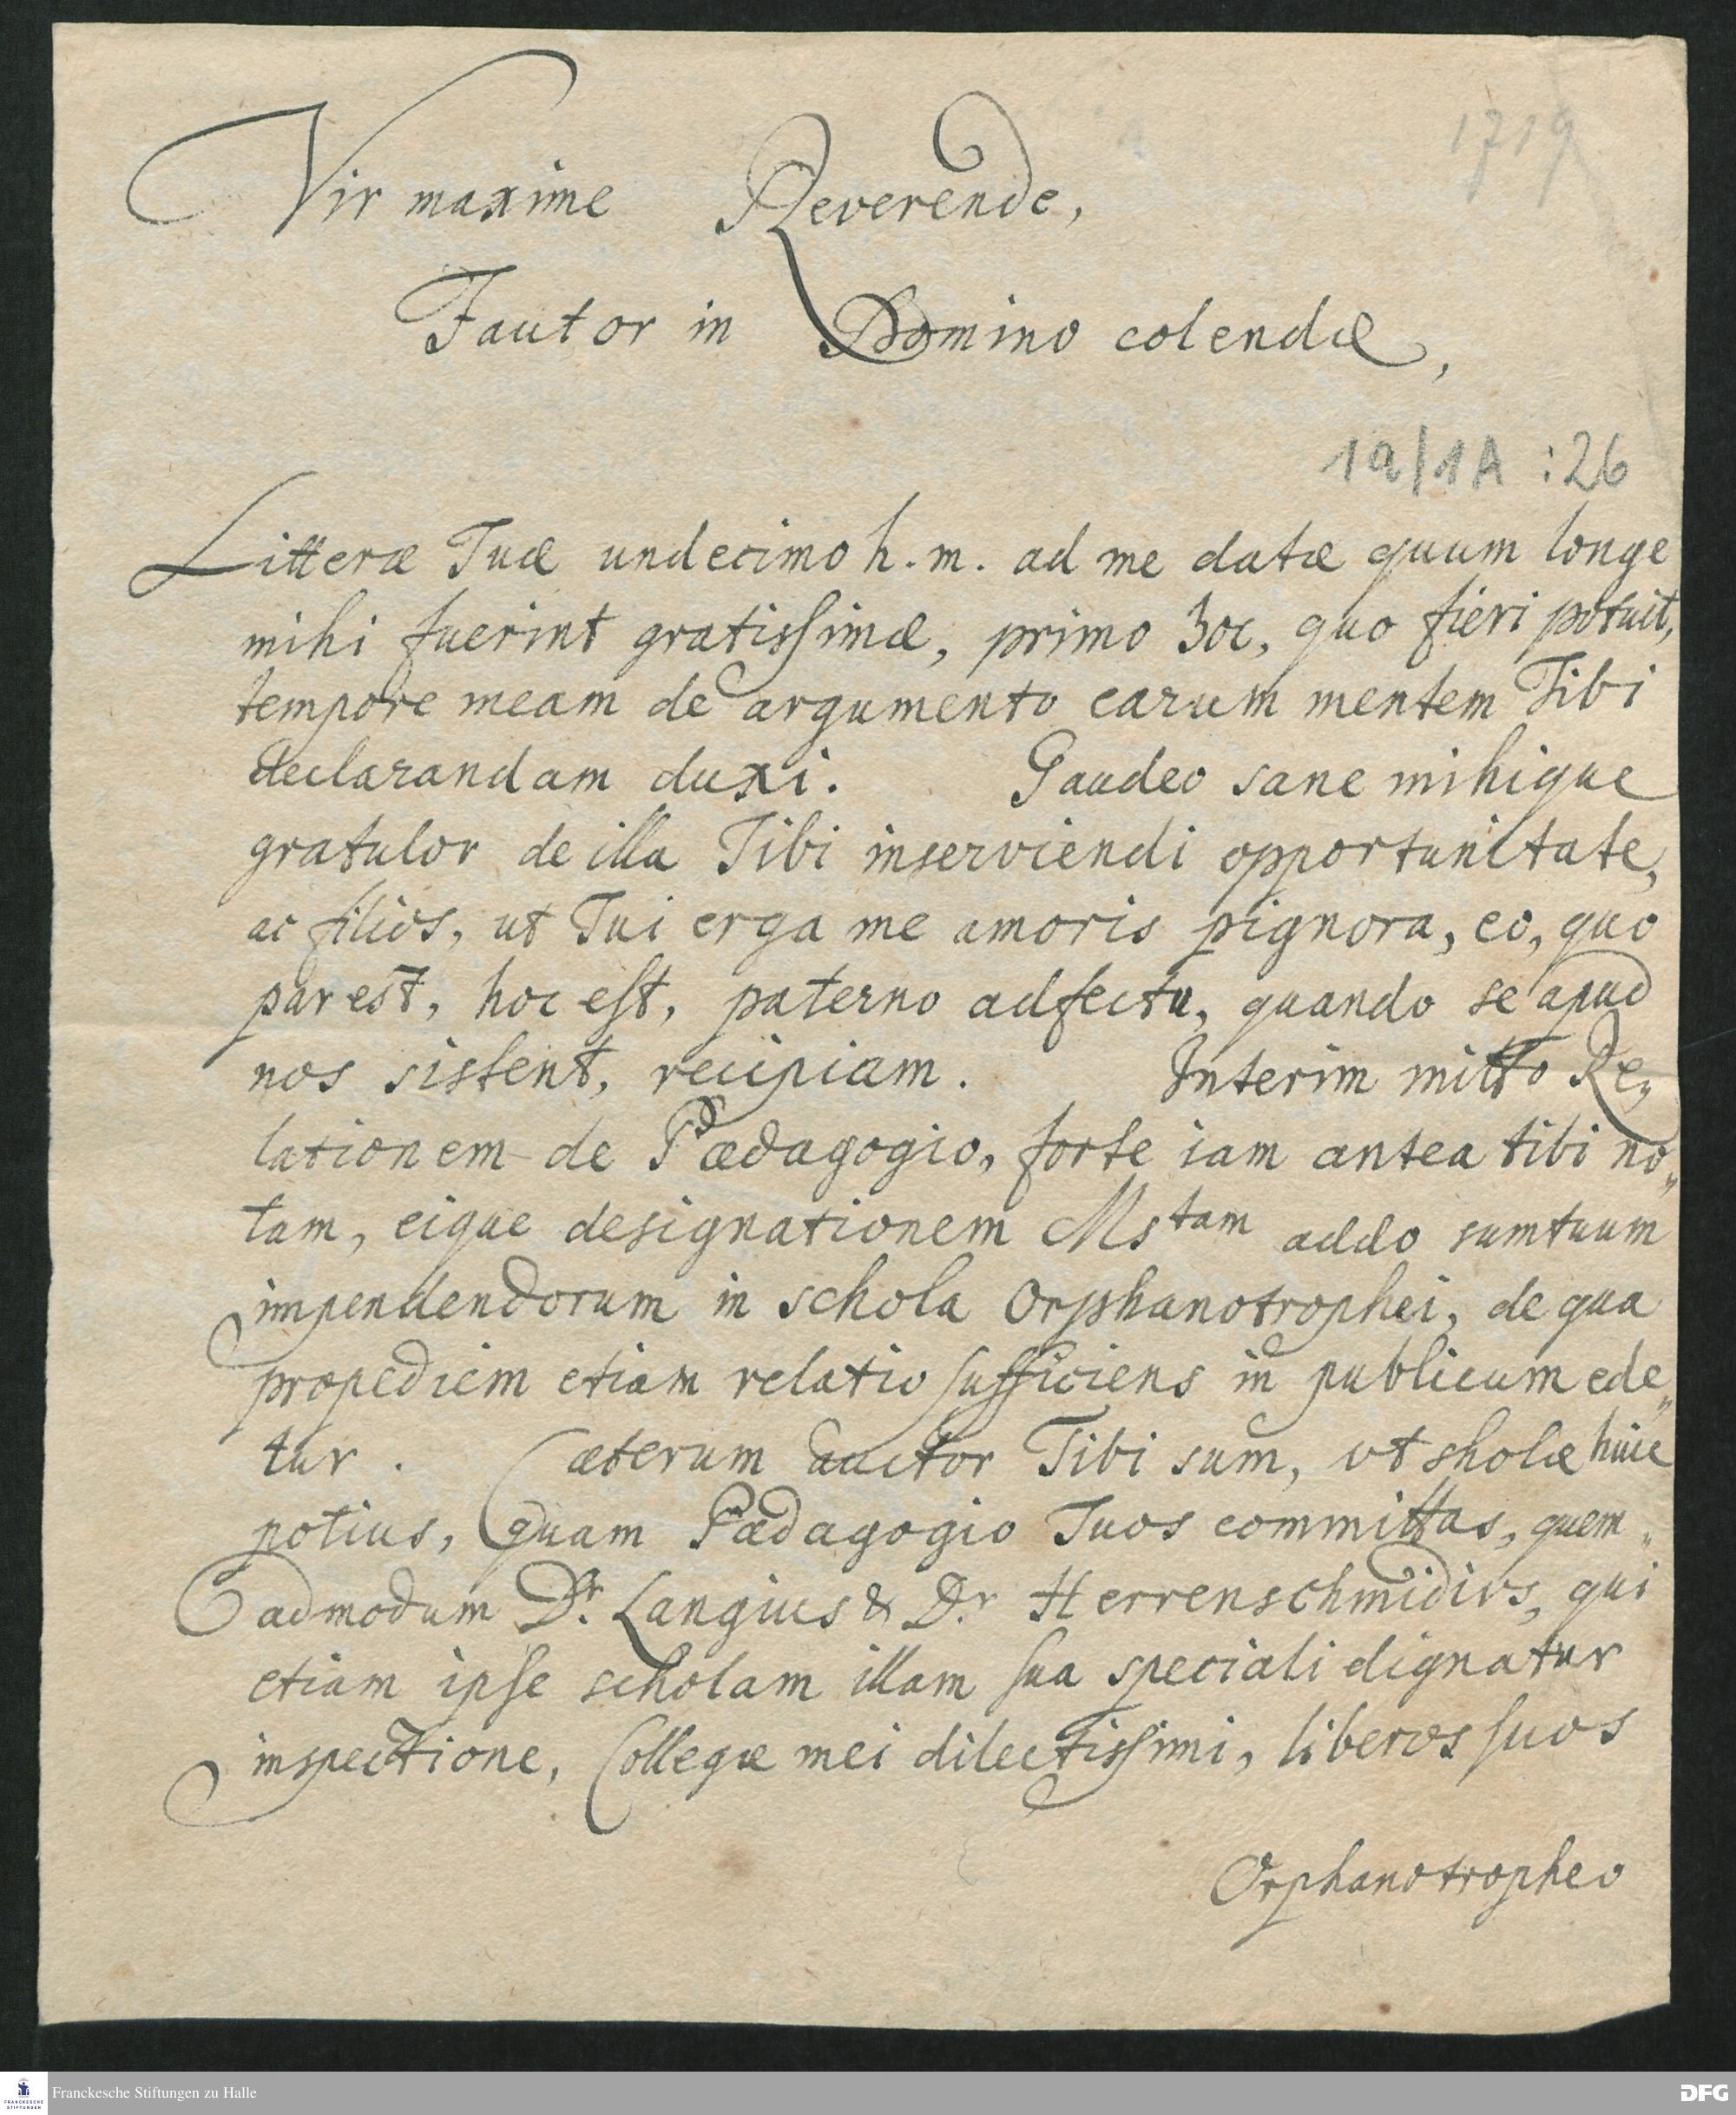 1719
Vir maxime Reverende,
Fautor in Domino colende,
1a/1A :26
Litteræ Tuæ undecimo h. m. ad me datæ quum longe
mihi fuerint gratissimæ, primo hoc, quo fieri potuit,
tempore meam de argumento earum mentem Tibi
declarandam duxi. Gaudeo sane mihique
gratulor de illa Tibi inserviendi opportunitate,
ac filios, ut Tui erga me amoris pignora, eo, quo
par est, hoc est, paterno adfectu, quando se apud
nos sistent, recipiam. Interim mitto Re„
lationem de Pædagogio, forte iam antea tibi no„
tam, eique designationem Mstam addo sumtuum
impendendorum in schola Orphanotrophei, de qua
propediem etiam relatio sufficiens in publicum ede„
tur. Cæterum auctor Tibi sum, vt sholæ huic
potius, quam Pædagogio Tuos committas, quem„
admodum Dr. Langius & Dr. Herrenschmidivs, qui
etiam ipse scholam illam sua speciali dignatur
inspectione, Collegæ mei dilectissimi, liberos suos
Orphanotropheo
Franckesche Stiftungen zu Halle
FRANCKESCHE
STIFTUNGEN
DFG